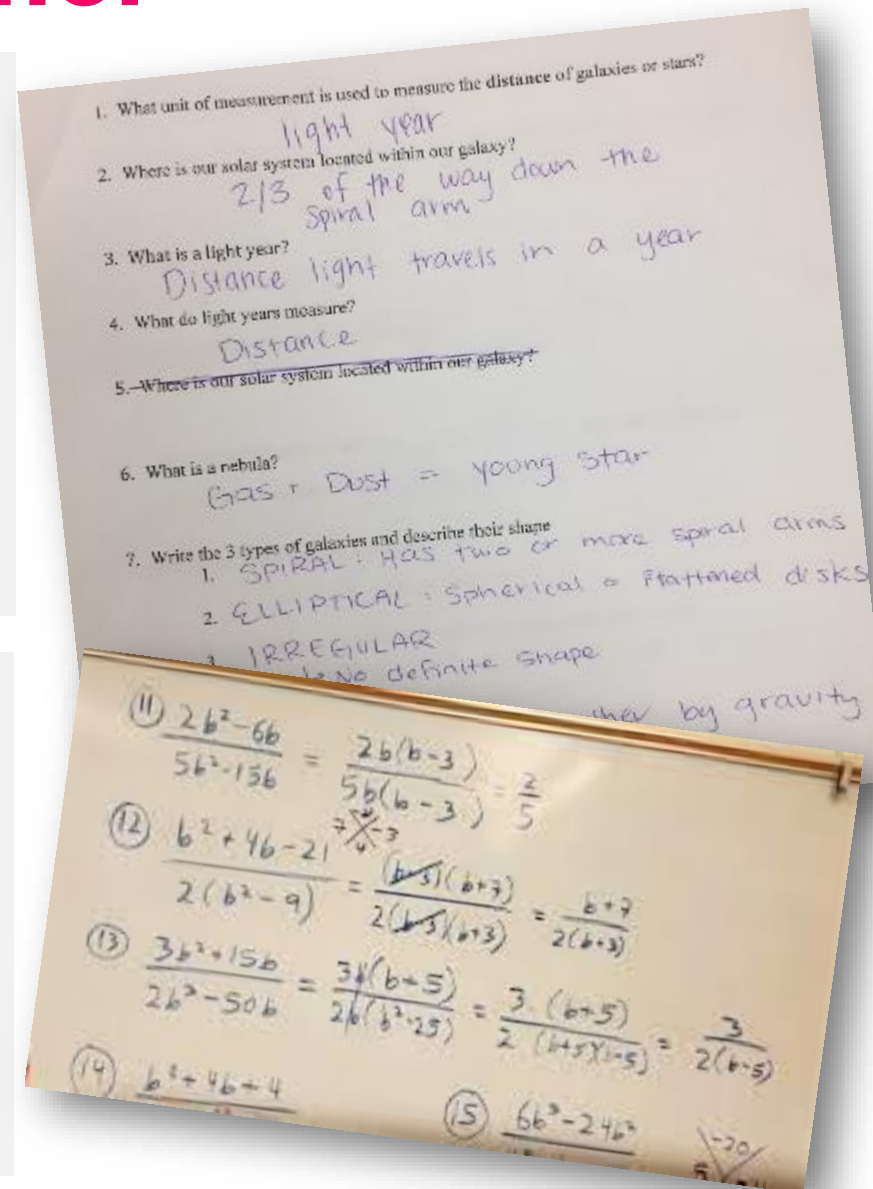 1. What unit of measurement is used to measure the distance of galaxies or stars?
light year
2. Where is our solar system located within our galaxy?
2/3 of the way down the
spiral arm
3. What is a light year?
Distance light travels in a year
4. What do light years measure?
Distance
5. Where is our solar system located within our galaxy?
6. What is a nebula?
Gas + Dust = young star
7. Write the 3 types of galaxies and describe their shape
1. SPIRAL : Has two or more spiral arms
2. ELLIPTICAL : Spherical o Flattened disks
IRREGULAR
No definite shape
by gravity
(11) (2b²-6b)/(5b²-15b) = 2b(b-3)/5b(b-3) = 2/5
(12) (b²+4b-21)/2(b²-9) 7 -3 4 = (b-3)(b+7)/2(b-3)(b+3) = (b+7)/2(b+3)
(13) (3b²+15b)/(2b³-50b) = 3b(b+5)/2b(b²-25) = 3(b+5)/2(b+5)(b-5) = 3/2(b-5)
(14) b²+4b+4
(15) 6b³-24b² -20